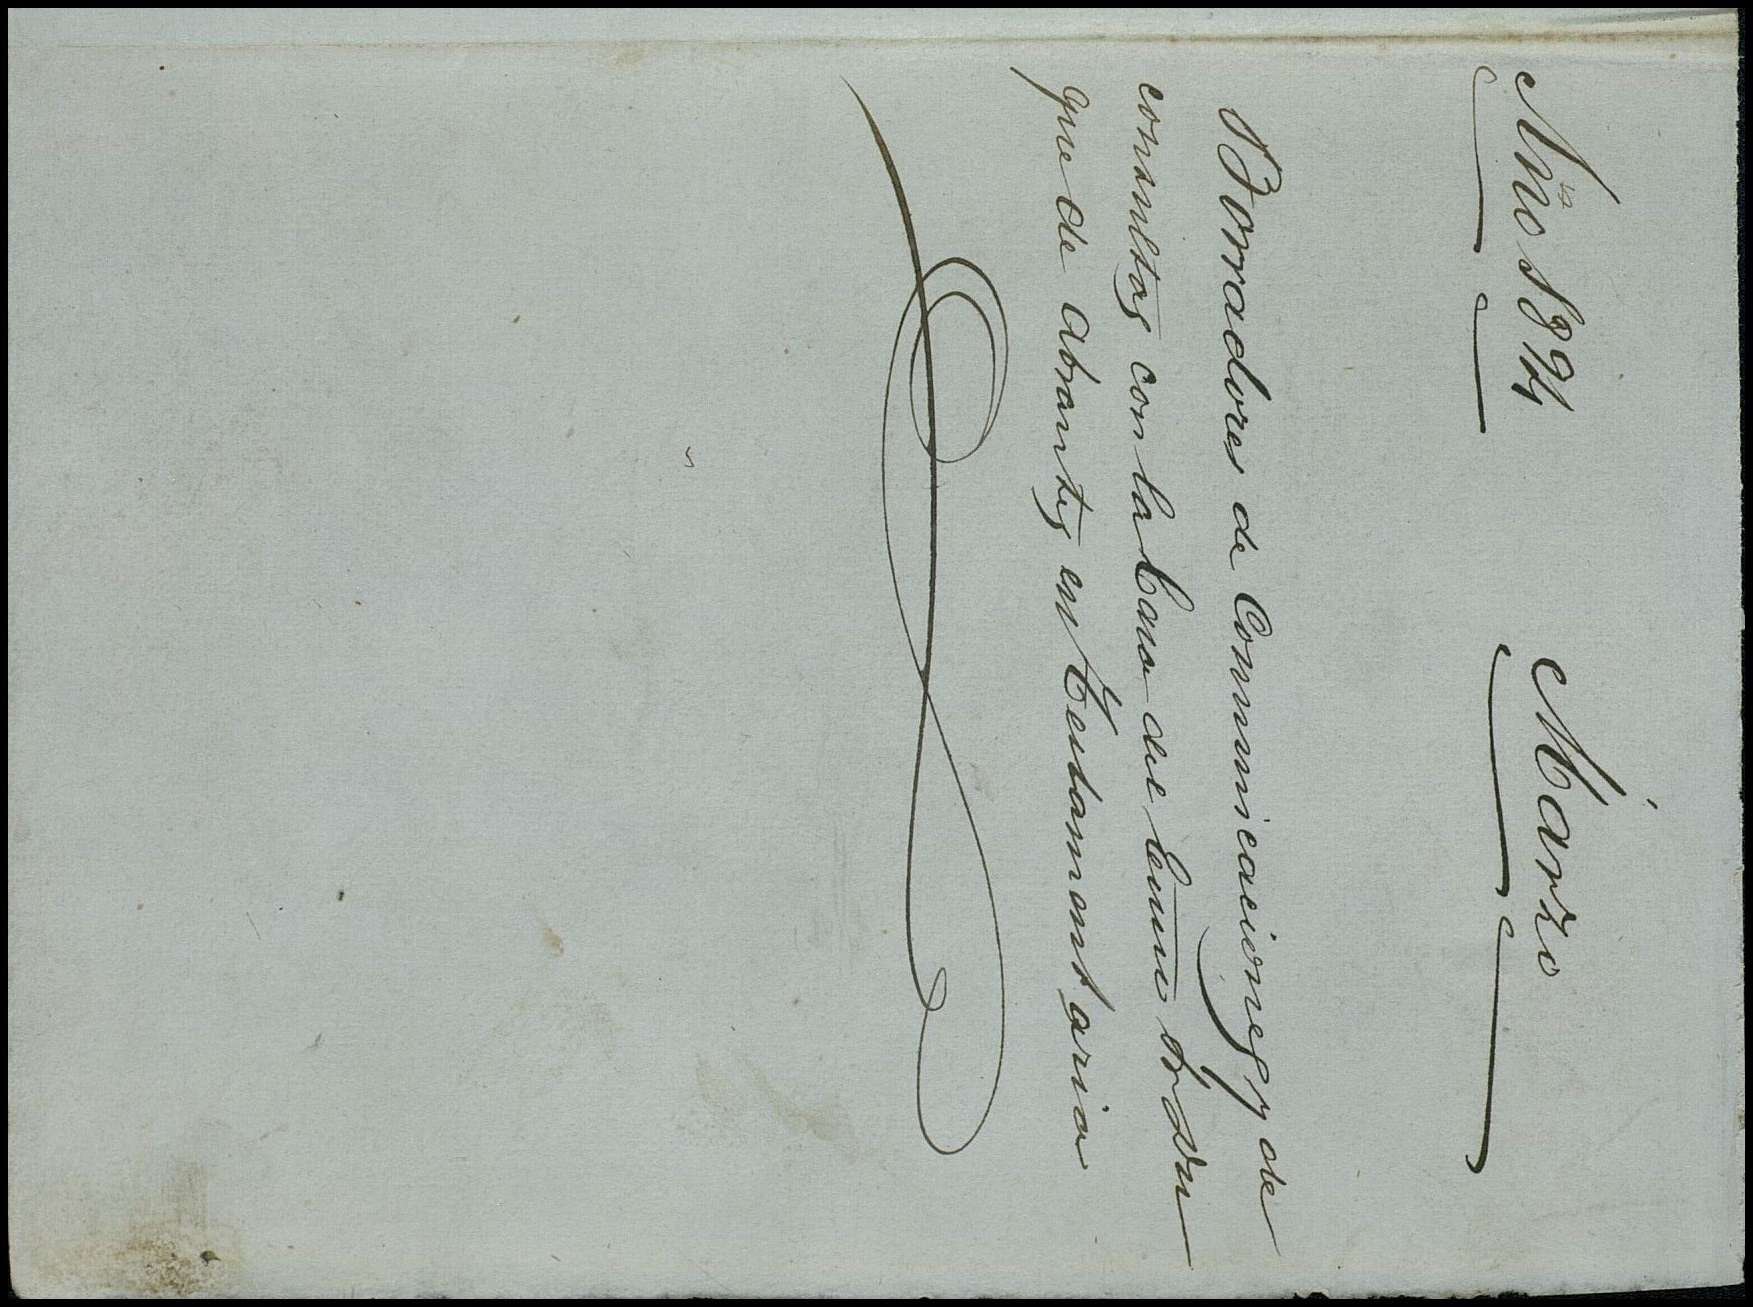 Año 1894 Marzo
Borradores de Comunicaciones y de
consultas con la Casa del Exmo Sr Du
que de Abrantes en Testamentaria